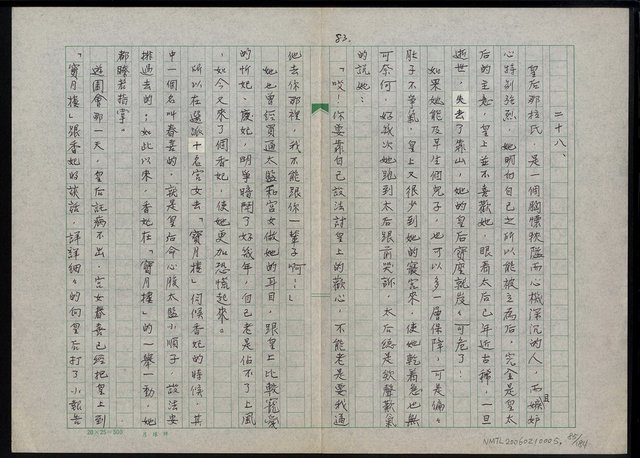 83.
二十八、
皇后那拉氏，是一個胸懷狹隘而心機深沉的人，而且嫉妒
心特別強烈，她明白自己之所以能被立為后，完全是皇太
后的主意，皇上並不喜歡她，眼看太后已年近古稀，一旦
逝世，失去了靠山，她的皇后寶座就岌々可危了！
如果她能及早生個兒子，也可以多一層保障，可是偏々
肚子不爭氣，皇上又很少到她的寢宮來，使她乾着急也無
可奈何，好幾次她跑到太后跟前哭訴，太后總是欷聲歎氣
的說她：
「唉！你要靠自己設法討皇上的歡心，不能老是要我逼
他去你那裡，我不能跟你一輩子啊！」
她也曾經買通太監和宮女做她的耳目，跟皇上比較寵愛
的忻妃、慶妃，明爭暗鬥了好幾年，自己老是佔不了上風
，如今又來了個香妃，使她更加恐慌起來。
所以在選派十名宮女去「寶月樓」伺候香妃的時候，其
中一個名叫春喜的，就是皇后命心腹太監小順子，設法安
排過去的；如此以來，香妃在「寶月樓」的一舉一動，她
都瞭若指掌。
遊園會那一天，皇后託病不出，宮女春喜已經把皇上到
「寶月樓」跟香妃的談話，詳詳細々的向皇后打了小報告
20×25=500
NMTL20060210005
85/184